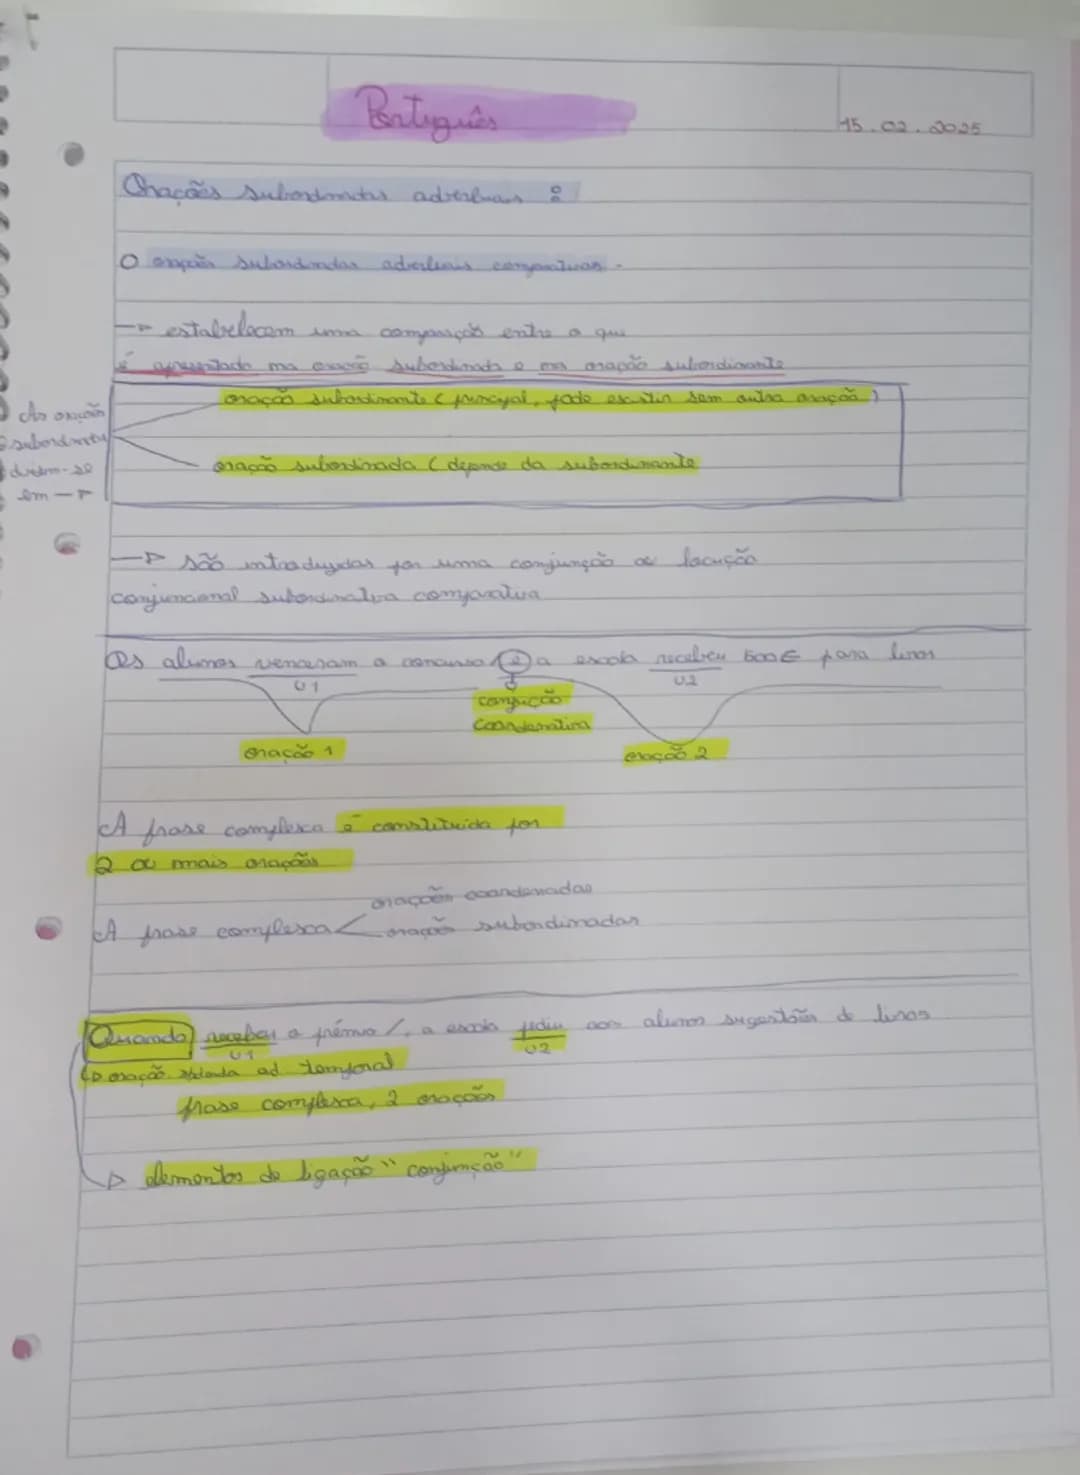 Português
15.02.2025
Orações subordinadas adverbiais :
O orações subordinadas adverbiais comparativas.
→ estabelecem uma comparação entre o que
é apresentado na oração subordinada e na oração subordinante
oração subordinante (principal, pode existir sem outra oração)
As orações
subordinadas
dividem-se
em →
oração subordinada (depende da subordinante
→ são introduzidas por uma conjunção ou locução
conjuncional subordinativa comparativa
Os alunos venceram o concurso / e a escola recebeu 500€ para livros
V1
V2
conjução
coordenativa
oração 1
oração 2
A frase complexa é constituída por
2 ou mais orações
orações coordenadas
A frase complexa < oração subordinadas
Quando recebeu o prémio /, a escola pediu aos alunos sugestões de livros
V1
V2
oração ad temporal
frase complexa, 2 orações
→ elementos de ligação "conjunção"